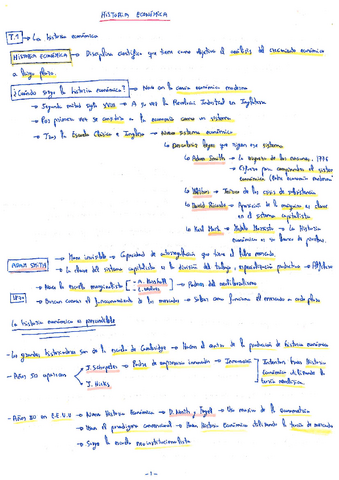 HISTORIA ECONÓMICA
T.1 → La historia económica
HISTORIA ECONÓMICA → Disciplina científica que tiene como objetivo el análisis del crecimiento económico
a largo plazo.
¿Cuándo surge la historia económica? → Nace con la ciencia económica moderna
→ Segunda mitad siglo XVIII → A su vez la Revolución Industrial en Inglaterra
→ Por primera vez se considera a la economía como un sistema.
→ Tras la Escuela Clásica e Inglesa → Nuevo sistema económico
↳ Descubrir leyes que rigen ese sistema
↳ Adam Smith → La riqueza de las naciones, 1776
→ Esfuerzo para comprender el sistema
económico
↳ Malthus → Teórico de las crisis de subsistencia
↳ David Ricardo → Aparición de la máquina es clave
en el sistema capitalista
↳ Karl Marx → Manifiesto → La historia
económica es su banco de pruebas.
ADAM SMITH → Mano invisible → Capacidad de autorregulación que tiene el libre mercado.
↳ La clave del sistema capitalista es la división del trabajo, especialización productiva
1870 → Nace la escuela marginalista → A. Marshall → Padres del neoliberalismo
↳ Buscan conocer el funcionamiento de los mercados → Saber como funciona el mercado a corto plazo
La historia económica es
- Los grandes historiadores son de la escuela de Cambridge → Hacen el centro de la producción de historia económica
- Años 50 aparecen → J. Schumpeter → Padre de empresario innovador → Innovación → Intentan hacer Historia
→ J. Hicks económica utilizando la
teoría neoclásica.
- Años 80 en E.E.U.U → Nueva Historia Económica → D. North y Fogel → Uso masivo de la econometría
→ Usan el paradigma convencional → Hacen Historia Económica utilizando la teoría de mercado
→ Surge la escuela neoinstitucionalista
- 1 -